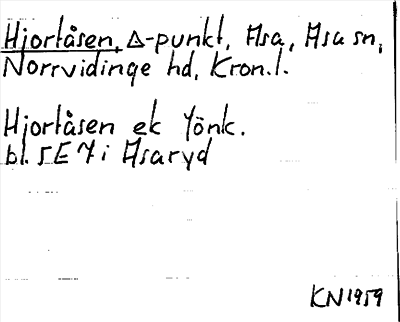 Hjortåsen, Δ-punkt, Asa, Asa sn,
Norrvidinge hd, Kron.l.
Hjortåsen ek Jönk.
bl. 5E 7i Asaryd
KN 1959